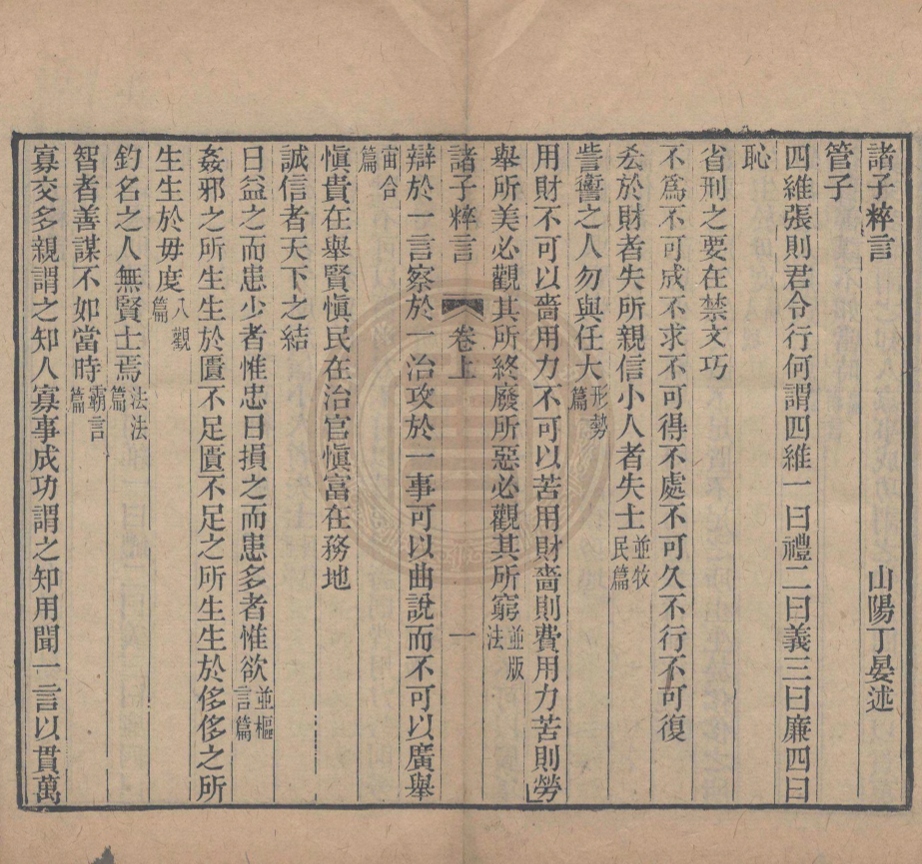 諸子粹言　山陽丁晏述
管子
四維張則君令行何謂四維一曰禮二曰義三曰廉四曰
恥
省刑之要在禁文巧
不爲不可成不求不可得不處不可久不行不可復
厺於財者失所親信小人者失士並牧民篇
訾讆之人勿與任大形勢篇
用財不可以嗇用力不可以苦用財嗇則費用力苦則勞
舉所美必觀其所終廢所惡必觀其所窮並版法
諸子粹言　卷上　一
辯於一言察於一治攻於一事可以曲說而不可以廣舉
宙合篇
愼貴在舉賢愼民在治官愼富在務地
誠信者天下之結
日益之而患少者惟忠日損之而患多者惟欲並樞言篇
姦邪之所生生於匱不足匱不足之所生生於侈侈之所
生生於毋度八觀篇
釣名之人無賢士焉法法篇
智者善謀不如當時霸言篇
寡交多親謂之知人寡事成功謂之知用聞一言以貫萬